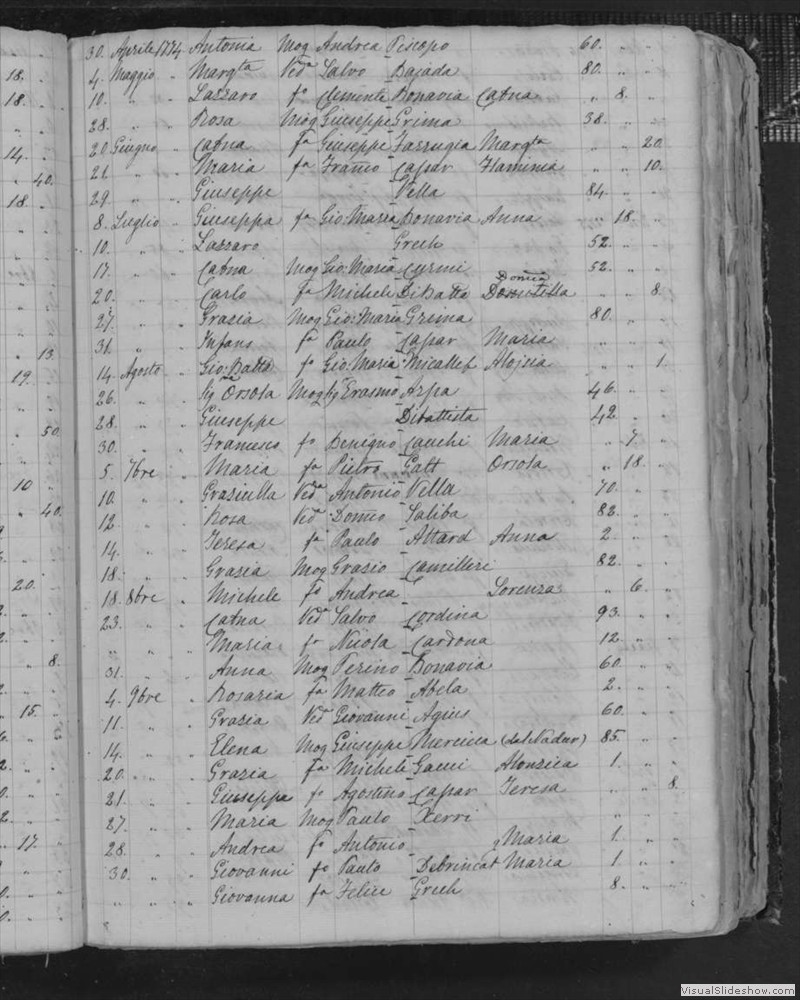 30. Aprile 1774 Antonia Mog Andrea Piscopo 60. " "
4. Maggio " Margta Veda Salvo Bajada 80. " "
10. " " Lazzaro fo Clemente Bonavia Catna " 8. "
28. " " Rosa Mog Giuseppe Grima 38. " "
20 Giugno " Catna fa Giuseppe Farrugia Margta " " 20
21. " " Maria fa Franco Caspar Flaminia " " 10.
29. " " Giuseppe Vella 84. " "
8. Luglio " Giuseppa fa Gio: Maria Bonavia Anna " 18. "
10. " " Lazzaro Grech 52. " "
17. " " Catna Mog Gio: Maria Curmi 52. " "
20. " " Carlo fo Michele DiBatta Domca " " 8.
27. " " Grazia Mog Gio: Maria Grima 80. " "
31. " " Infans fo Paulo Caspar Maria " " "
14. Agosto " Gio: Batta fo Gio: Maria Micallef Alojsia " " 1.
26. " " Sigra Orsola Mog Sig Erasmo Azpa 46. " "
28. " " Giuseppe Dibattista 42. " "
30. " " Francesco fo Benigno Cauchi Maria " 7. "
5. 7bre " Maria fa Pietro Galt Orsola " 18. "
10. " " Graziulla Veda Antonio Vella 70. " "
12. " " Rosa Veda Domco Saliba 82. " "
14. " " Teresa fa Paulo Attard Anna 2. " "
18. " " Grazia Mog Grazio Camilleri 82. " "
18. 8bre " Michele fo Andrea Lorenza " 6. "
23. " " Catna Veda Salvo Cordina 93. " "
" " " Maria fa Nicola Cardona 12. " "
31. " " Anna Mog Perino Bonavia 60. " "
4. 9bre " Rosaria fa Matteo Abela 2. " "
11. " " Grazia Veda Giovanni Agius 60. " "
14. " " Elena Mog Giuseppe Mercieca 85. " "
20. " " Grazia fa Michele Gauci Alonzica 1. " "
21. " " Giuseppa fa Agostino Caspar Teresa " " 8.
27. " " Maria Mog Paulo Xerri " "
28. " " Andrea fo Antonio Maria 1. " "
30. " " Giovanni fo Paulo Debrincat Maria 1. " "
" " " Giovanna fa Felice Grech 8. " "
VisualSlideshow.com